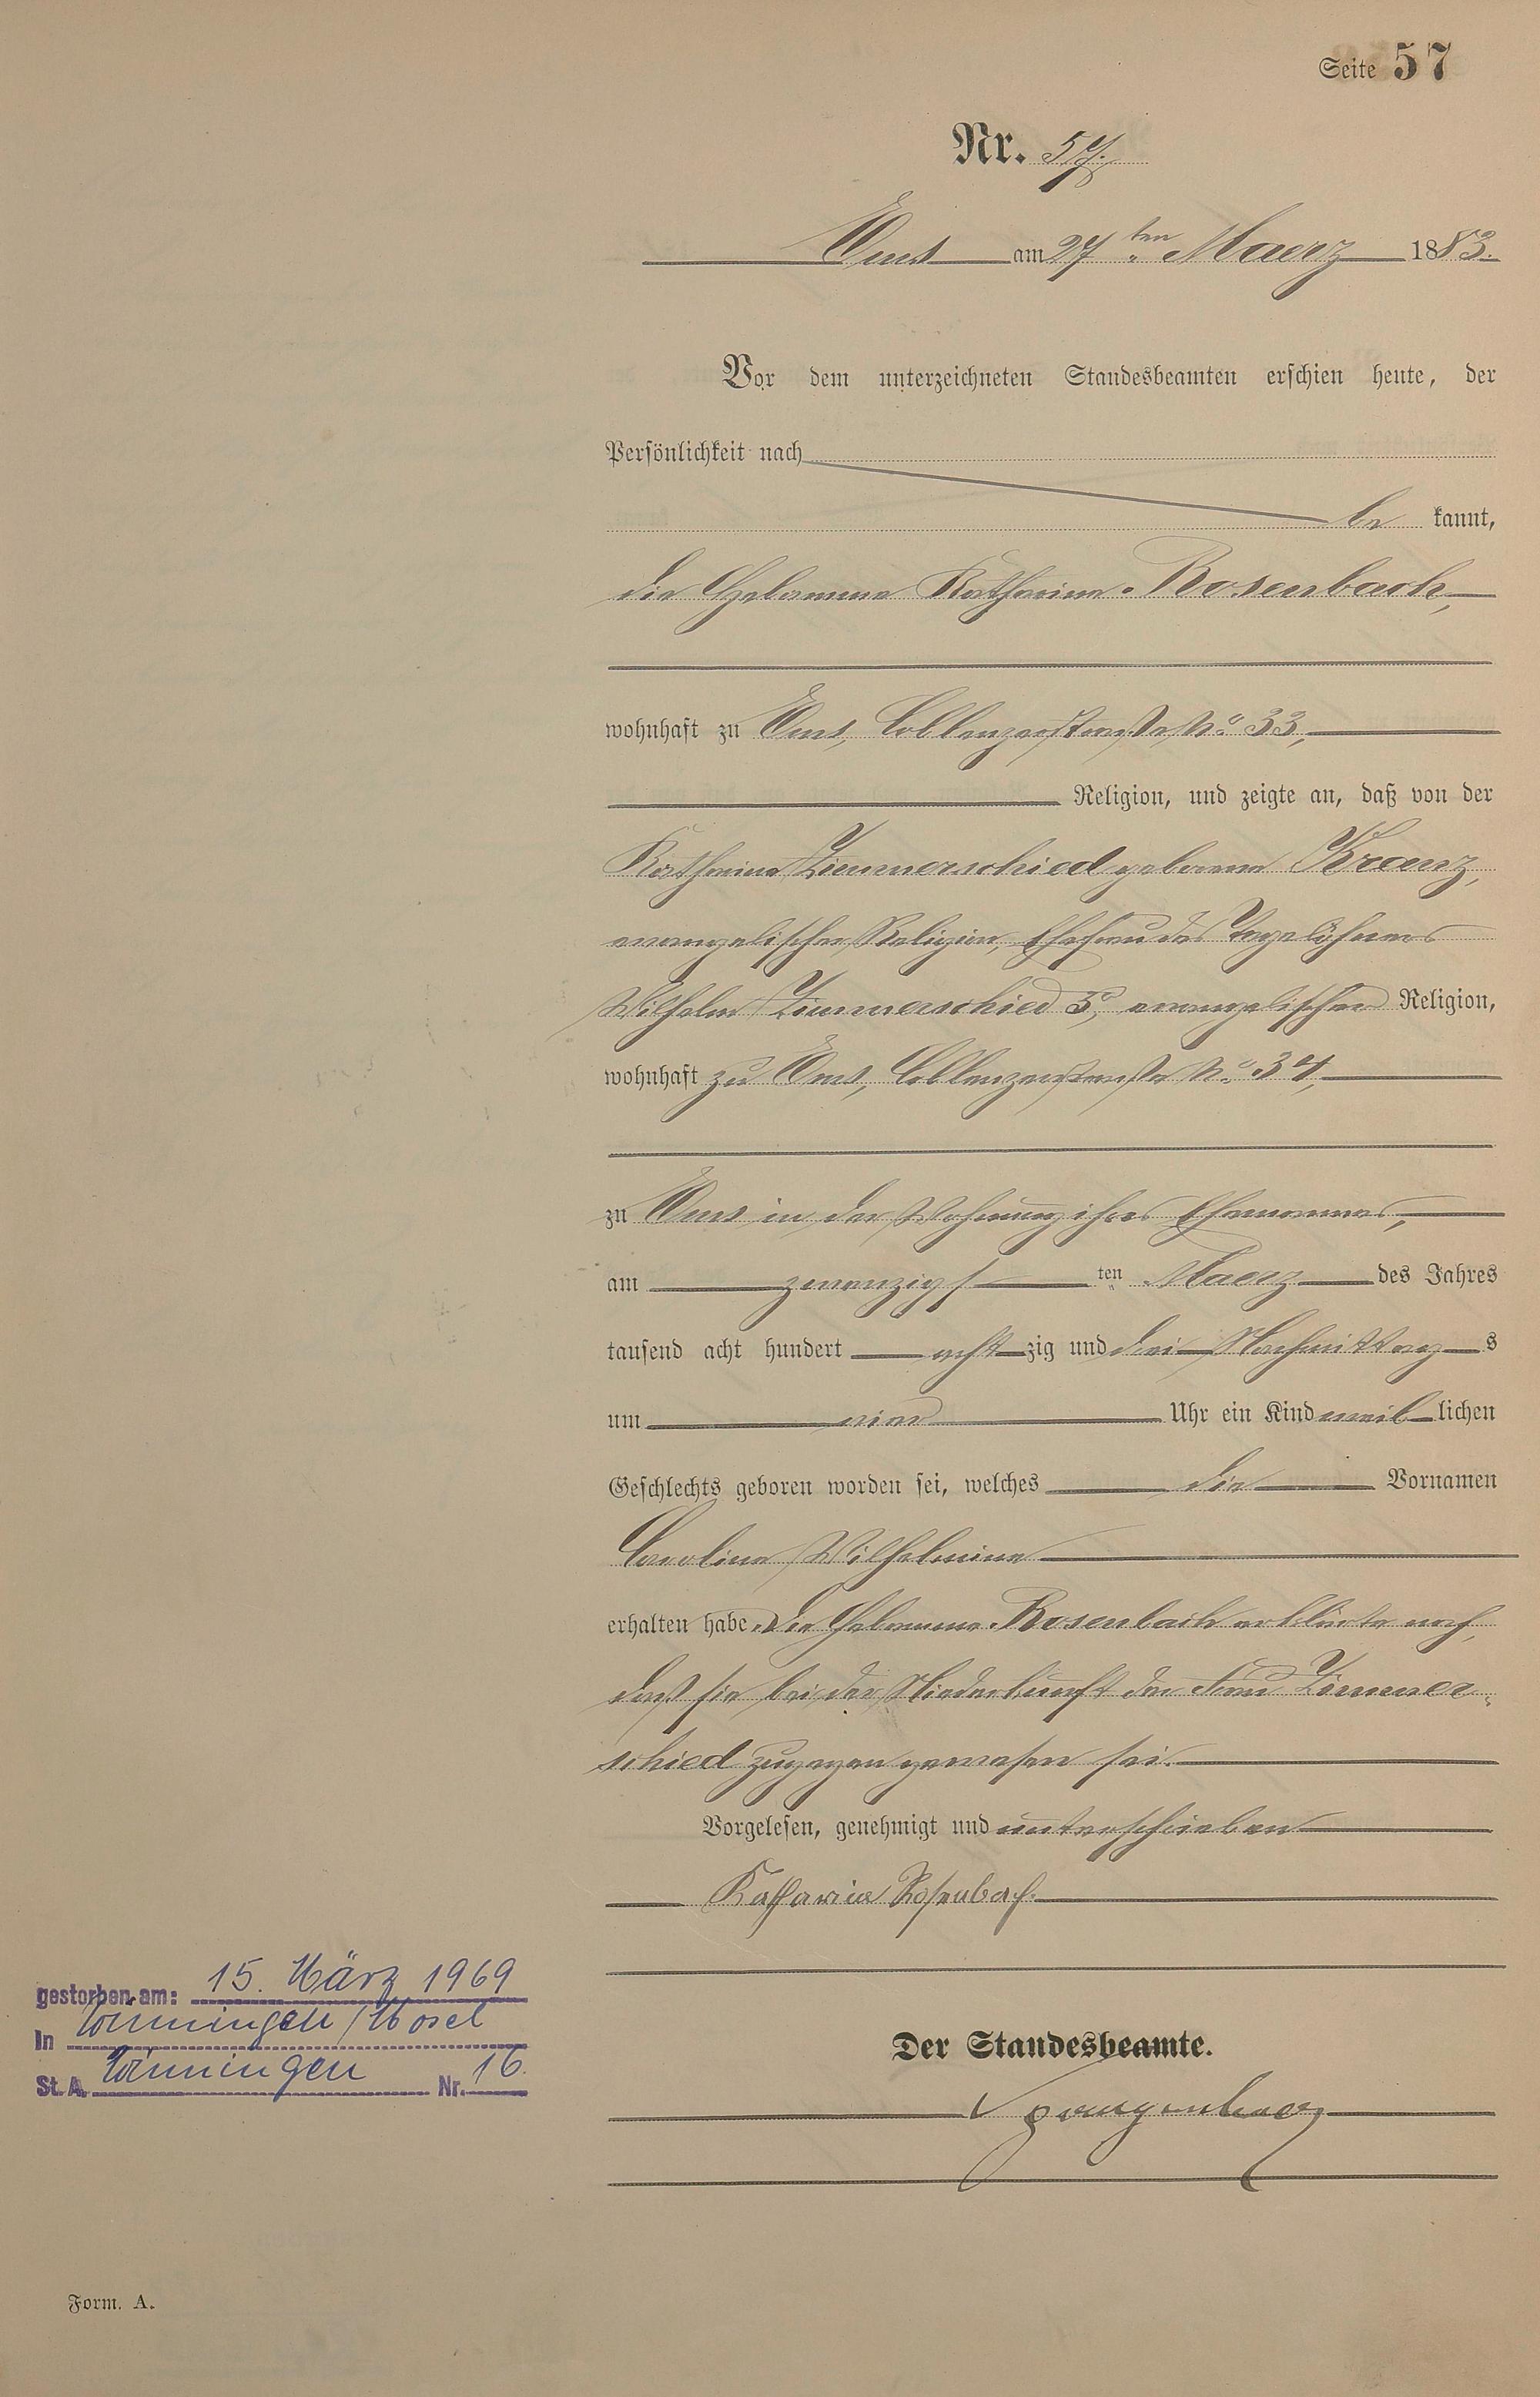 Seite 57
Nr. 57.
Ems am 27ten Maerz 1883.
Vor dem unterzeichneten Standesbeamten erschien heute, der
Persönlichkeit nach
be kannt,
die Hebamme Katharina Rosenbach,
wohnhaft zu Ems, Coblenzerstraße No. 33,
Religion, und zeigte an, daß von der
Katharina Zimmerschied geborene Kranz,
evangelischer Religion, Ehefrau des Tagelöhners
Wilhelm Zimmerschied evangelischer Religion,
wohnhaft zu Ems, Coblenzerstraße No. 34,
zu Ems in der Wohnung ihres Ehemannes,
am zwanzigsten Maerz des Jahres
tausend acht hundert achtzig und drei Nachmittags
um vier Uhr ein Kind weiblichen
Geschlechts geboren worden sei, welches die Vornamen
Carolina Wilhelmina
erhalten habe. Die Hebamme Rosenbach erklärte noch,
daß sie bei der Niederkunft der Frau Zimmer-
schied zugegen gewesen sei.
Vorgelesen, genehmigt und unterschrieben
Katharina Rosenbach.
gestorben am: 15. März 1969
In Winningen/Mosel
St.A. Winningen Nr. 16.
Der Standesbeamte.
Form. A.